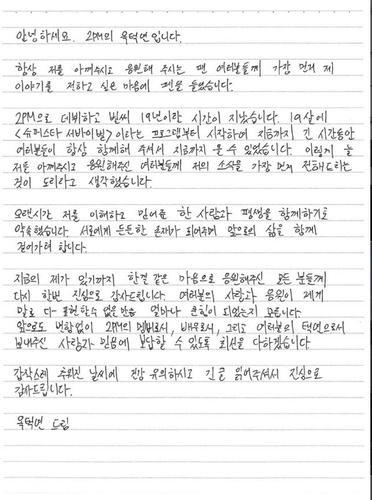 안녕하세요. 2PM의 옥택연입니다.
항상 저를 아껴주시고 응원해 주시는 팬 여러분들께 가장 먼저 제
이야기를 전하고 싶은 마음에 펜을 들었습니다.
2PM으로 데뷔하고 벌써 19년이란 시간이 지났습니다. 19살에
<슈퍼스타 서바이벌>이라는 프로그램부터 시작하여 지금까지 긴 시간동안
여러분들이 항상 함께해 주셔서 지금까지 올 수 있었습니다. 이렇게 늘
저를 아껴주시고 응원해주신 여러분들께 저의 소식을 가장 먼저 전해드리는
것이 도리라고 생각했습니다.
오랜시간 저를 이해하고 믿어준 한 사람과 평생을 함께하기로
약속했습니다. 서로에게 든든한 존재가 되어주며 앞으로의 삶을 함께
걸어가려 합니다.
지금의 제가 있기까지 한결 같은 마음으로 응원해주신 모든 분들께
다시 한번 진심으로 감사드립니다. 여러분의 사랑과 응원이 제게
말로 다 표현할 수 없을 만큼 얼마나 큰 힘이 되었는지 모릅니다.
앞으로도 변함없이 2PM의 멤버로서, 배우로서, 그리고 여러분의 택연으로서
보내주신 사랑과 믿음에 보답할 수 있도록 최선을 다하겠습니다.
갑작스레 추워진 날씨에 건강 유의하시고 긴 글 읽어주셔서 진심으로
감사드립니다.
옥택연 드림